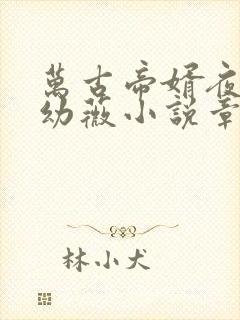 萬古帝婿夜
幼薇小說章
林小犬